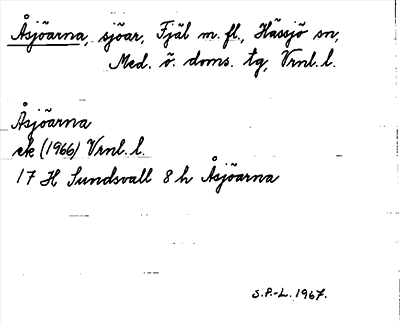 Åsjöarna, sjöar, Fjäl m. fl., Hässjö sn,
Med. ö. doms. tg, Vrnl. l.
Åsjöarna
ek (1966) Vrnl. l.
17 H Sundsvall 8 h Åsjöarna
S.P.-L. 1967.